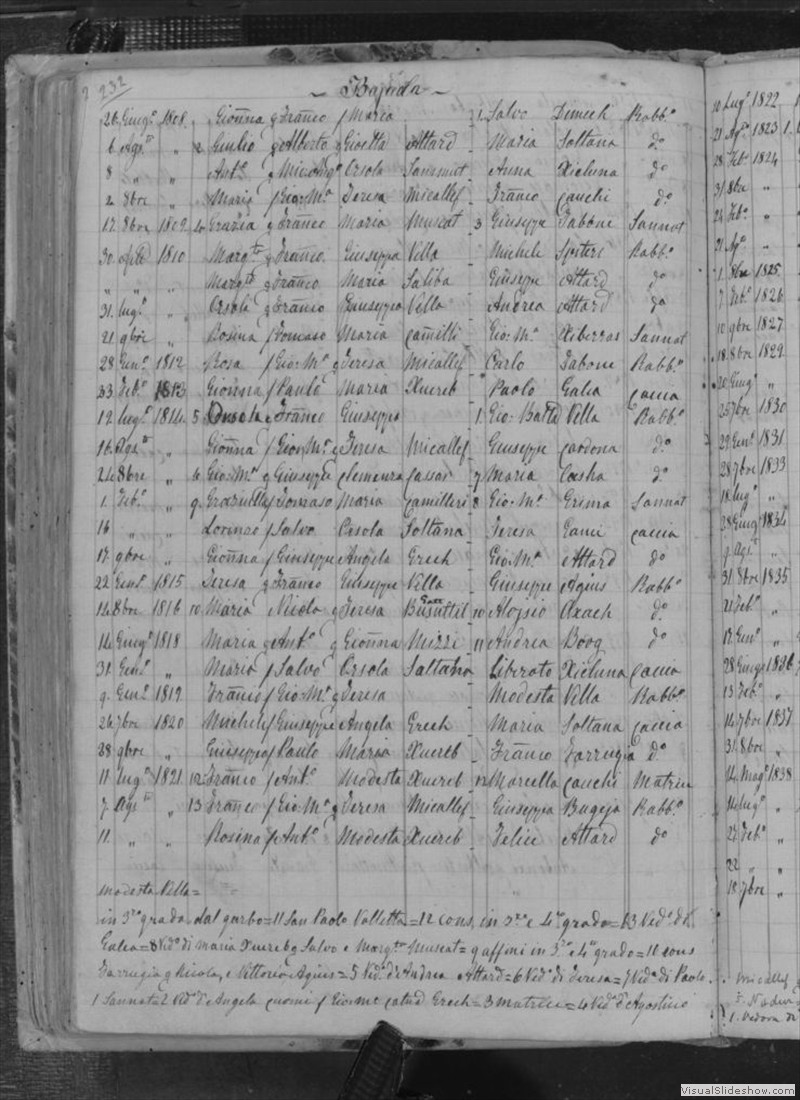 232
~ Bajada ~
26 Giug.º 1808 Gionna q Franco / Maria 1 Salvo Dimech Rabb.º
6 Ags.to " 2 Giulio q Alberto q Gioetta Attard Maria Soltana d.º
8 " " Ant.º q Orsola Sammut Anna Xicluna d.º
2 8bre " Maria / Gio: M.ª Teresa Micallef Franco Cauchi d.º
17 8bre 1809 4 Grazia q Franco Maria Muscat 3 Giuseppe Tabone Sannat
30 1810 Marg.ta q Franco Giuseppa Villa Michele Spiteri Rabb.º
" " " Marg.ta q Franco Maria Saliba Giuseppe Attard d.º
31 lug.º " Orsola q Franco Giuseppa Vella Andrea Attard d.º
21 9bre " Rosina / Tomaso Maria Camilleri Gio: M.ª Xiberras Sannat
28 Gen.º 1812 Rosa / Gio: M.ª q Teresa Micallef Carlo Tabone Rabb.º
23 Feb.º 1813 Gionna / Paulo Maria Xuereb Paolo Galea Caccia
12 lug.º 1814 5 Franco Giuseppa 1 Gio: Batta Villa Rabb.º
16 Ags.to " Gionna / Gio: M.ª q Teresa Micallef Giuseppe Cardona d.º
24 8bre " 6 Gio: M.ª q Giuseppe Clemenza Cassar 7 Maria Casha d.º
1 Feb.º " 9 Graziulla / Tomaso Maria Camilleri 8 Gio: M.ª Grima Sannat
16 " " Lorenzo / Salvo Orsola Soltana Teresa Caccia
17 9bre " Gionna / Giuseppe Angela Grech Gio: M.ª Attard d.º
22 Gen.º 1815 Teresa q Franco Giuseppa Villa Giuseppe Agius Rabb.º
14 8bre 1816 10 Maria Nicola q Teresa Busuttil 10 Aloysio Axach d.º
14 Giug.º 1818 Maria q Ant.º q Gionna Mizzi 11 Andrea Borg d.º
31 Gen.º " Maria / Salvo Orsola Saltana Liberato Xicluna Caccia
9 Gen.º 1819 Franco / Gio: M.ª q Teresa Modesta Villa Rabb.º
26 7bre 1820 Michele / Giuseppe Angela Grech Maria Soltana Caccia
28 9bre " Giuseppa / Paulo Maria Xuereb Franco Farrugia d.º
11 lug.º 1821 12 Franco / Ant.º Modesta Xuereb 12 Marcella Cauchi Matrice
7 Ags.to " 13 Franco / Gio: M.ª q Teresa Micallef Giuseppa Bugeja Rabb.º
11 " " Rosina / Ant.º Modesta Xuereb Felice Attard d.º
Modesta Villa =
in 3.zo grado dal garbo = 11 San Paolo Valletta = 12 cons. in 3.zo e 4.to grado = 13 Ved.º di
Galea = 8 Ved.º di Maria Xuereb q Salvo e Marg.ta Muscat = 9 affini in 3.zo e 4.to grado = 10 cons
Farrugia q Nicola, e Vittoria Agius = 5 Ved.ª di Andrea Attard = 6 Ved.º di Teresa = 7 Ved.ª di Paolo
1 Sannat = 2 Ved.º d' Angela / Giovanne Grech = 3 Matrice = 4 Ved.º d' Agostino
10 Lug.º 1822
21 Ag.to 1823 1.
28 Feb.º 1824
31 8bre "
24 Feb.º "
21 Ag.to "
1 8bre 1825
7 Feb.º 1826
10 9bre 1827
18 8bre 1829
20 Giug.º "
25 7bre 1830
29 Gen.º 1831
28 7bre 1833
18 lug.º "
28 Giug.º 1834
9 Ags.to "
31 8bre 1835
21 Feb.º "
17 Gen.º "
28 Giug.º 1836
13 Feb.º "
14 7bre 1837
31 8bre "
14 Mag.º 1838
14 lug.º "
27 Feb.º "
22 " "
18 7bre "
Micallef
Nadur
1. Vedova di
VisualSlideshow.com